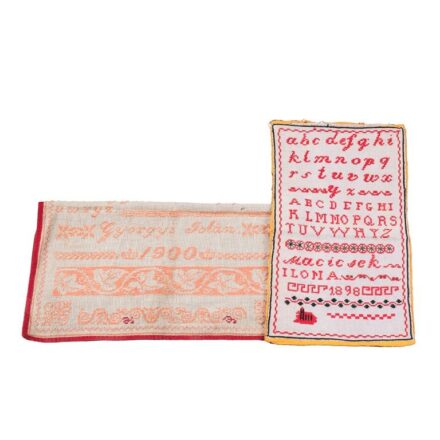 Györgyi
1900
abcdefghi
klmnopq
rstuvwx
yz
ABCDEFGHI
KLMNOPQRS
TUVWXYZ
Macicsek
ILONA
1898